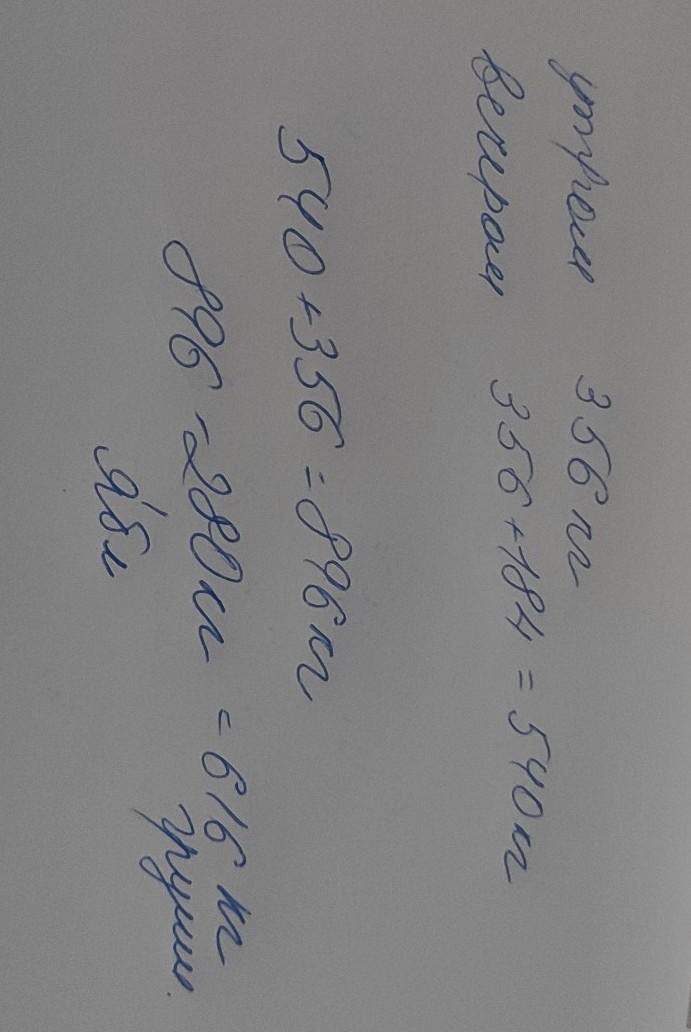 утром 356 кг
вечером 356 + 184 = 540 кг
540 + 356 = 896 кг
896 - 280 кг = 616 кг
Ябл груши.